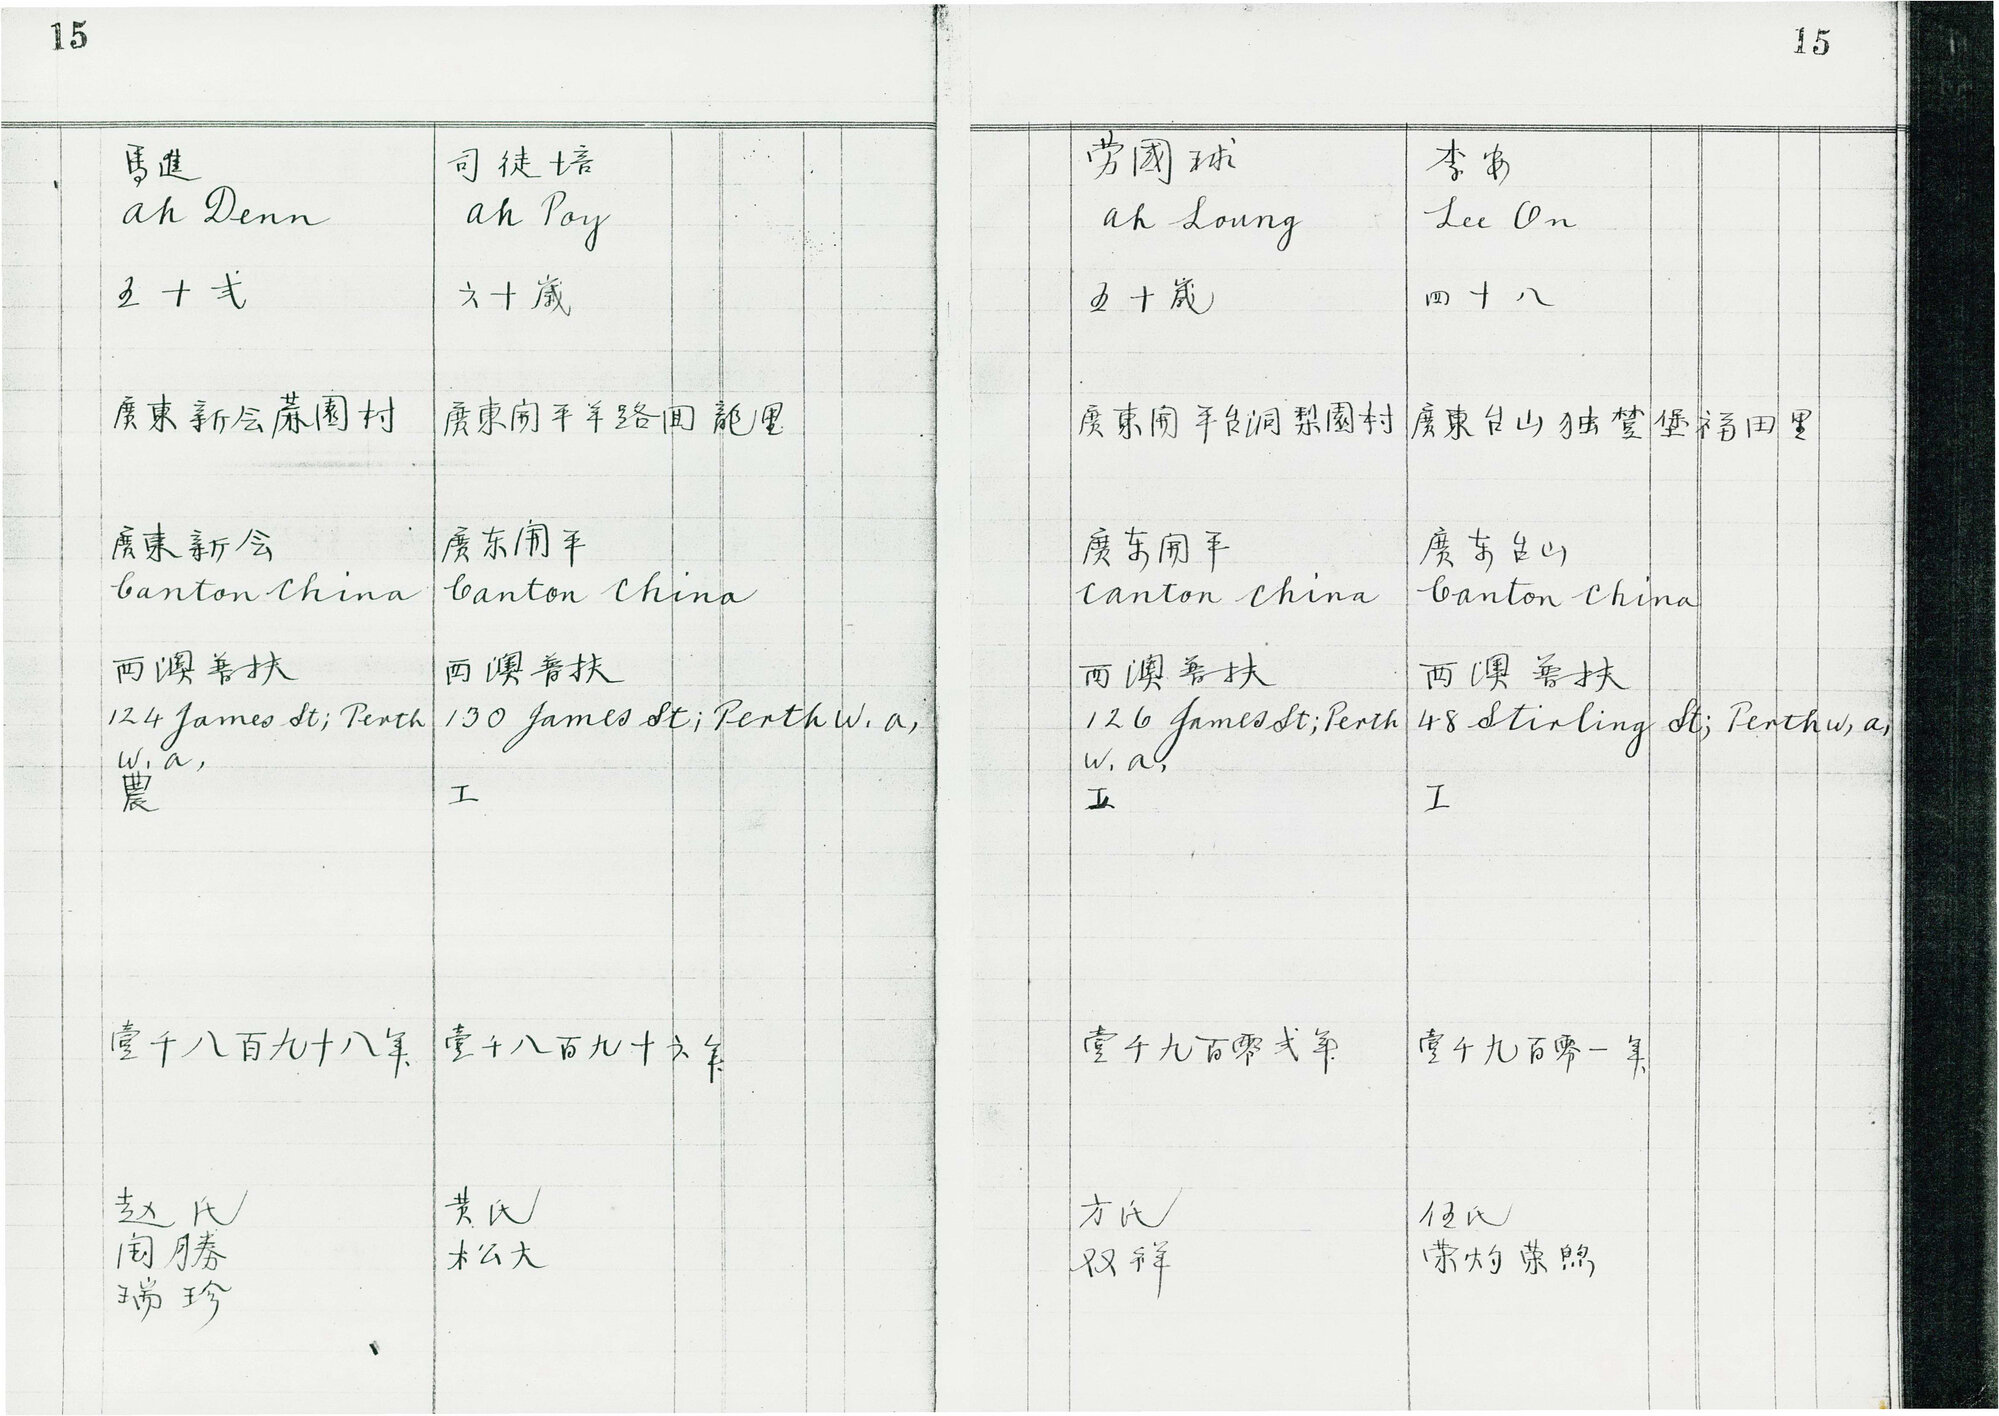 15
馬進
ah Denn
五十弍
廣東新会蔴園村
廣東新会
Canton China
西澳普扶
124 James St; Perth
W. a,
農
壹千八百九十八年
赵氏
國勝
瑞珍
司徒培
ah Poy
六十歲
廣東開平羊路回龍里
廣东開平
Canton China
西澳普扶
130 James St; Perth W. a,
工
壹千八百九十六年
黄氏
松大
15
劳國球
ah Loung
五十歲
廣東開平台洞梨園村
廣东開平
Canton China
西澳普扶
126 James St; Perth
W. a,
工
壹千九百零弍年
方氏
双祥
李安
Lee On
四十八
廣東台山独䓫堡福田里
廣东台山
Canton China
西澳普扶
48 Stirling St; Perth W, a,
工
壹千九百零一年
伍氏
荣灼荣照